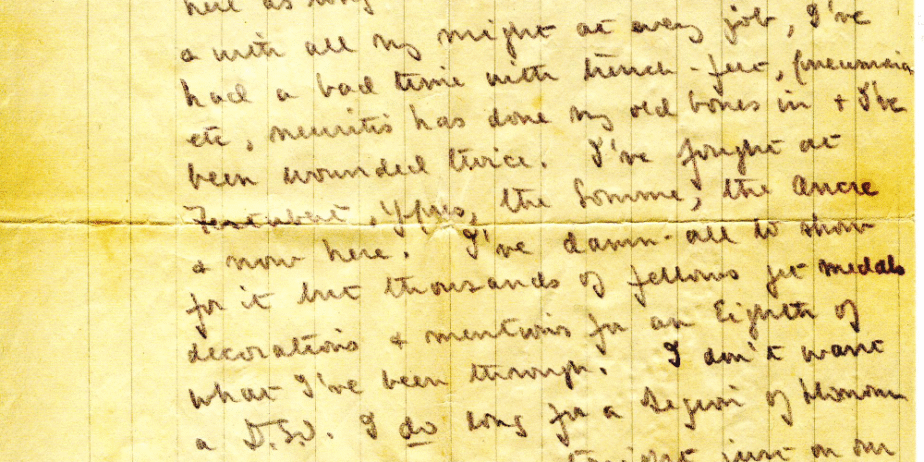 here as long
& with all my might at every job, I've
had a bad time with trench-feet, pneumonia
etc, neuritis has done my old bones in & I've
been wounded twice. I've fought at
Festubert, Ypres, the Somme, the Ancre
& now here. I've damn-all to show
for it but thousands of fellows get medals
decorations & mentions for an Eighth of
what I've been through. I don't want
a D.S.O. I do long for a Legion of Honour
tonight just on our